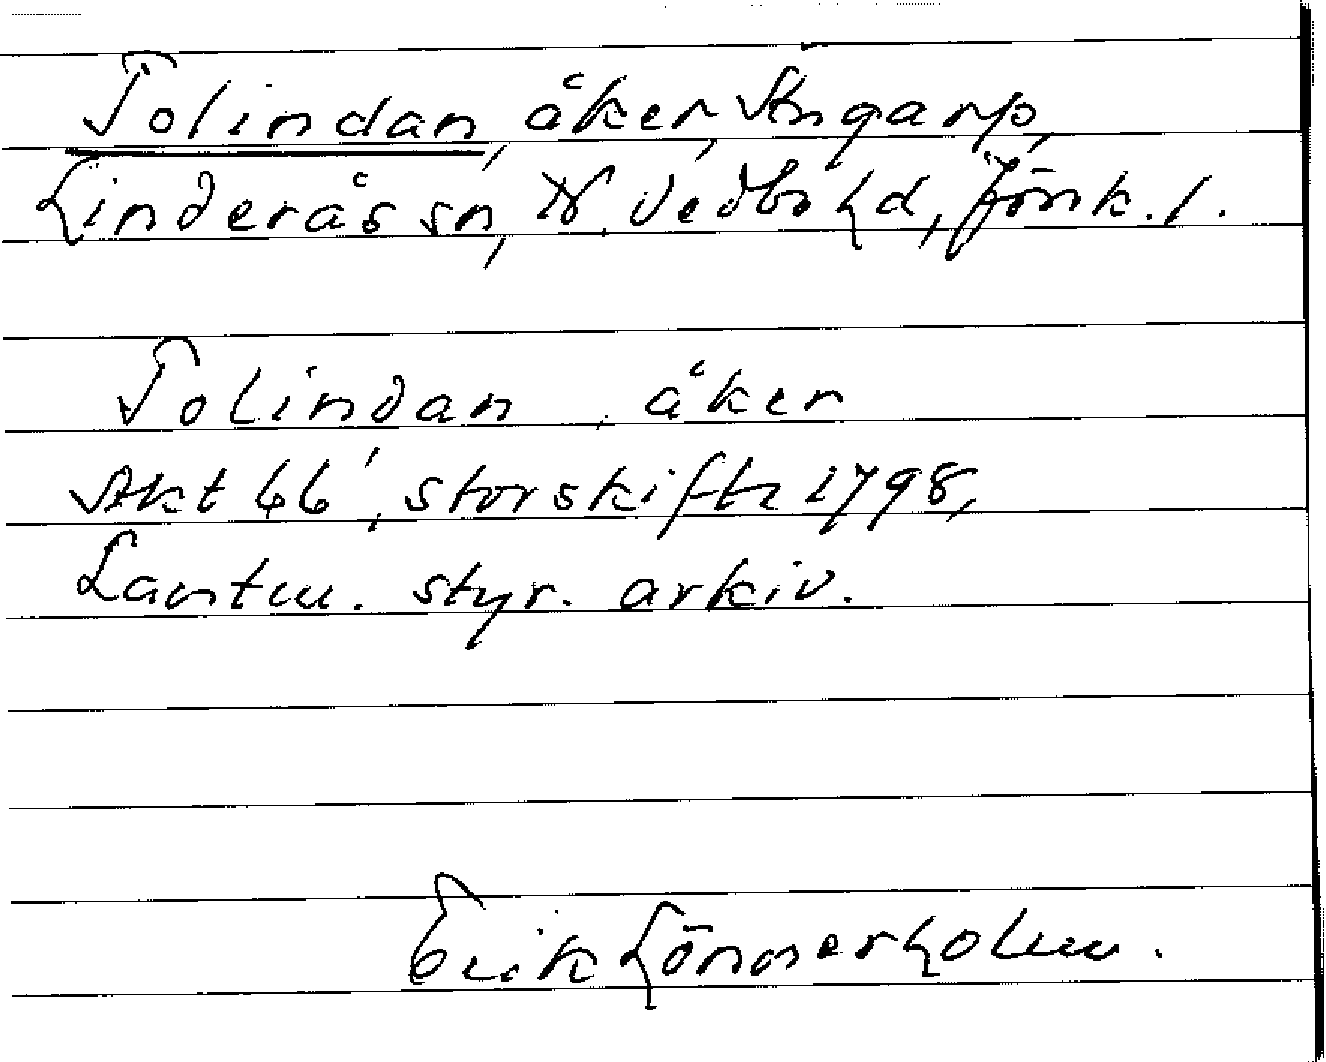 Tolindan, åker, Ängarp,
Linderås sn, N. Vedbo hd, Jönk. l.
Tolindan, åker
Akt 66', storskifte 1798,
Lantm. styr. arkiv.
Erik Lönnerholm.